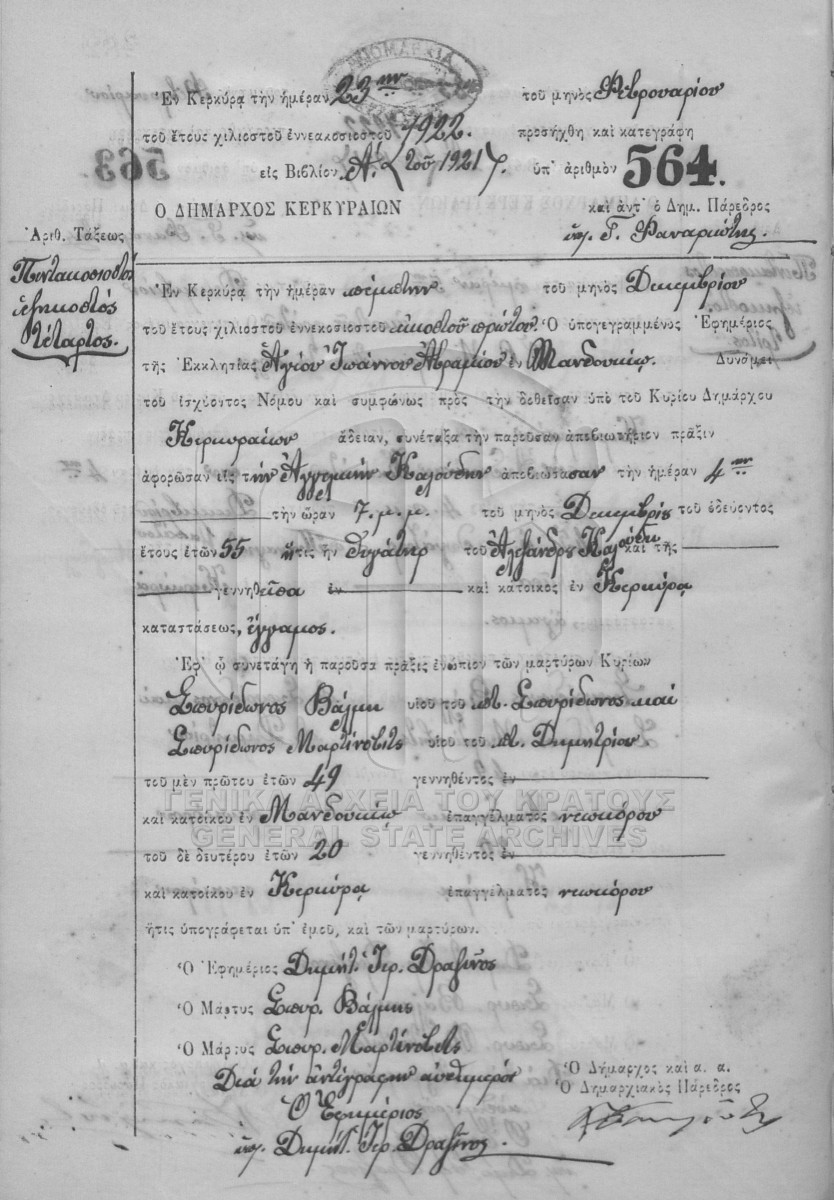 Ἐν Κερκύρᾳ τὴν ἡμέραν 23ην τοῦ μηνὸς Φεβρουαρίου
τοῦ ἔτους χιλιοστοῦ ἐννεακοσιοστοῦ 1922. προσήχθη καὶ κατεγράφη
εἰς Βιβλίον Α. τοῦ 1921 ὑπ' ἀριθμὸν 564.
Ο ΔΗΜΑΡΧΟΣ ΚΕΡΚΥΡΑΙΩΝ καὶ ἀντ' ὁ Δημ. Πάρεδρος
Γ. Φαναριώτης
Ἀριθ. Τάξεως
Πεντακοσιοστὸς
ἑξηκοστὸς
τέταρτος.
Ἐν Κερκύρᾳ τὴν ἡμέραν πέμπτην τοῦ μηνὸς Δεκεμβρίου
τοῦ ἔτους χιλιοστοῦ ἐννεκοσιοστοῦ εἰκοστοῦ πρώτου Ὁ ὑπογεγραμμένος Ἐφημέριος
τῆς Ἐκκλησίας Ἁγίου Ἰωάννου ἐν Μανδουκίῳ. Δυνάμει
τοῦ ἰσχύοντος Νόμου καὶ συμφώνως πρὸς τὴν δοθεῖσαν ὑπὸ τοῦ Κυρίου Δημάρχου
Κερκυραίων ἄδειαν, συνέταξα τὴν παροῦσαν ἀποβιωτήριον πρᾶξιν
ἀφορῶσαν εἰς τὴν Ἀγγελικὴν Καλούδη ἀποβιώσασαν τὴν ἡμέραν 4ην
τὴν ὥραν 7. μ.μ. τοῦ μηνὸς Δεκεμβρίς τοῦ ὁδεύοντος
ἔτους ἐτῶν 55 ἥτις ἦν θυγάτηρ τοῦ Ἀλεξάνδρς Καλούδη καὶ τῆς
γεννηθεῖσα ἐν καὶ κάτοικος ἐν Κερκύρᾳ
καταστάσεως, ἔγγαμος.
Ἐφ' ᾧ συνετάγη ἡ παροῦσα πρᾶξις ἐνώπιον τῶν μαρτύρων Κυρίων
Σπυρίδωνος Βάλμη υἱοῦ τοῦ ποτ. Σπυρίδωνος καὶ
Σπυρίδωνος Μαρτίνοβιτς υἱοῦ τοῦ ποτ. Δημητρίου.
τοῦ μὲν πρώτου ἐτῶν 49 γεννηθέντος ἐν
ΓΕΝΙΚΑ ΑΡΧΕΙΑ ΤΟΥ ΚΡΑΤΟΥΣ
καὶ κατοίκου ἐν Μανδουκίῳ ἐπαγγέλματος νεωκόρου
GENERAL STATE ARCHIVES
τοῦ δὲ δευτέρου ἐτῶν 20 γεννηθέντος ἐν
καὶ κατοίκου ἐν Κερκύρᾳ ἐπαγγέλματος νεωκόρου
ἥτις ὑπογράφεται ὑπ' ἐμοῦ, καὶ τῶν μαρτύρων.
Ὁ Ἐφημέριος Δημήτ. Ἱερ. Δραζῖνος
Ὁ Μάρτυς Σπυρ. Βάλμης
Ὁ Μάρτυς Σπυρ. Μαρτίνοβιτς
Διὰ τὴν ἀντιγραφὴν αὐθημερὸν
Ὁ Ἐφημέριος
Δημήτ. Ἱερ. Δραζῖνος
Ὁ Δήμαρχος καὶ α. α.
Ὁ Δημαρχιακὸς Πάρεδρος